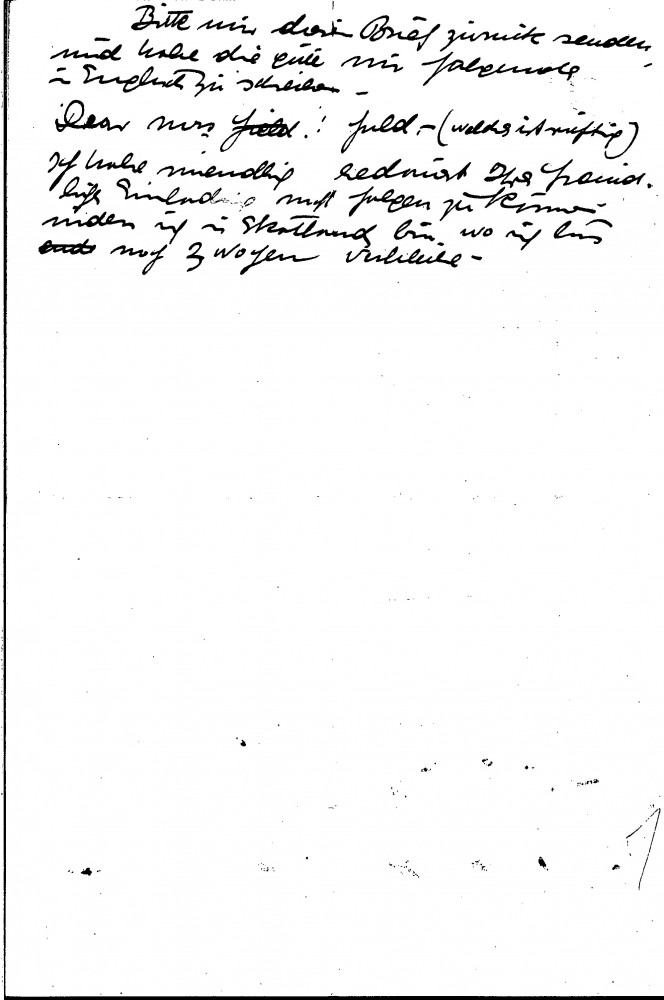 Bitte mir diesen Brief zurück senden,
und habe die güte mir folgende
in Englisch zu schreiben –
Dear Mrs Field! Fuld – (welches ist richtig)
Ich habe unendlich bedauert Ihre freund-
liche Einladung nicht folgen zu können
indem ich in Skottland bin, wo ich bis
ende noch 3 wochen verbleibe –